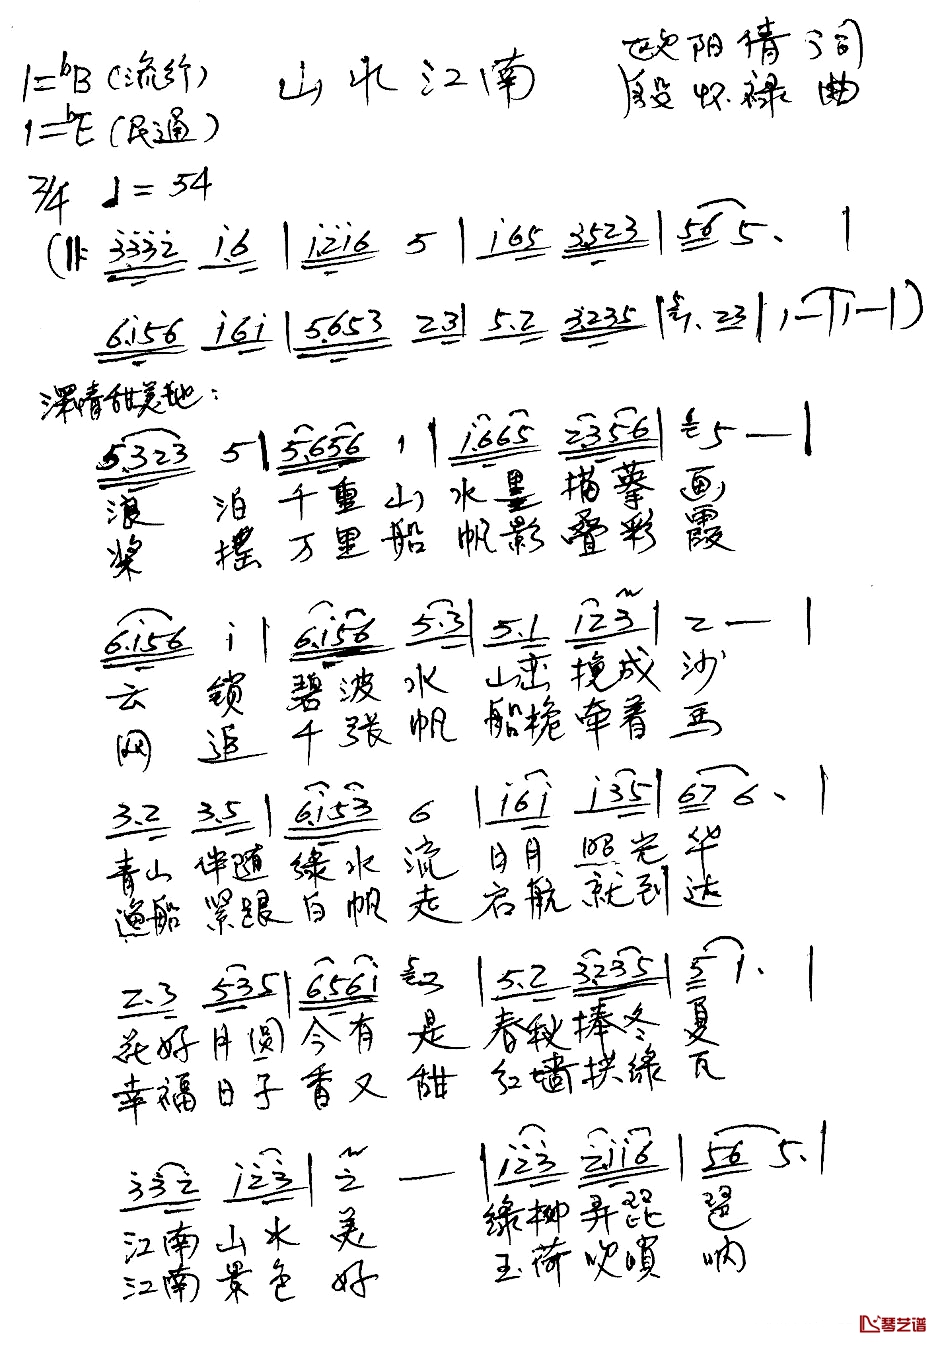 1=bB(流行) 山水江南 欧阳倩 词
1=bE(民通) 段怀禄 曲
2/4 ♩=54
(‖: 3.332 1.6 | 1.216 5 | 165 3.523 | 56 5. |
6.156 161 | 5.653 23 | 5.2 3.235 | 1. 23 | 1 — | 1 — |)
深情甜美地:
5.323 5 | 5.656 1 | 1.665 2.356 | 5 — |
浪 泊 千重 山 水墨 描摹 画
桨 摇 万里 船 帆影 叠彩 霞
6.156 1 | 6.156 5.3 | 5.1 123 | 2 — |
云 锁 碧波 水 山峦 挽成 沙
网 追 千张 帆 船桅 牵着 马
3.2 3.5 | 6.153 6 | 161 135 | 67 6. |
青山 伴随 绿水 流 日月 照光 华
渔船 紧跟 白帆 走 启航 就到 达
2.3 535 | 6.561 3 | 5.2 3.235 | 5 1. |
花好 月圆 今有 是 春秋 捧冬 夏
幸福 日子 香又 甜 红墙 拱绿 瓦
332 123 | 2 — | 123 2.116 | 56 5. |
江南 山水 美 绿柳 弄琵 琶
江南 景色 好 玉荷 吹唢 呐
琴艺谱